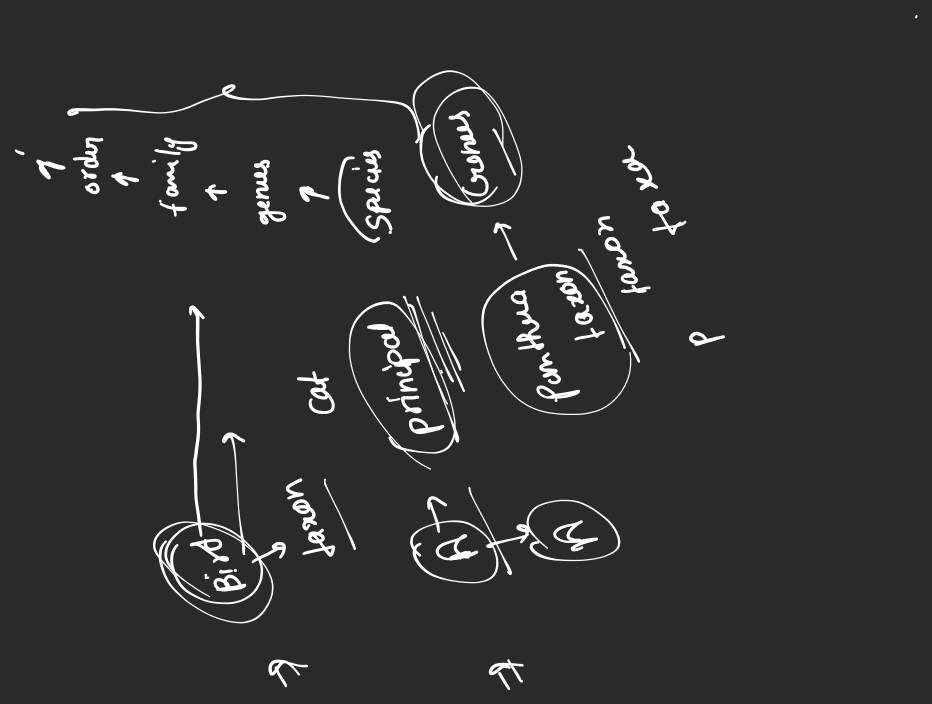 order
family
Bird
genus
taxon
cat
Species
principal
A
Genus
Panthera
taxon
taxon
taxa
P